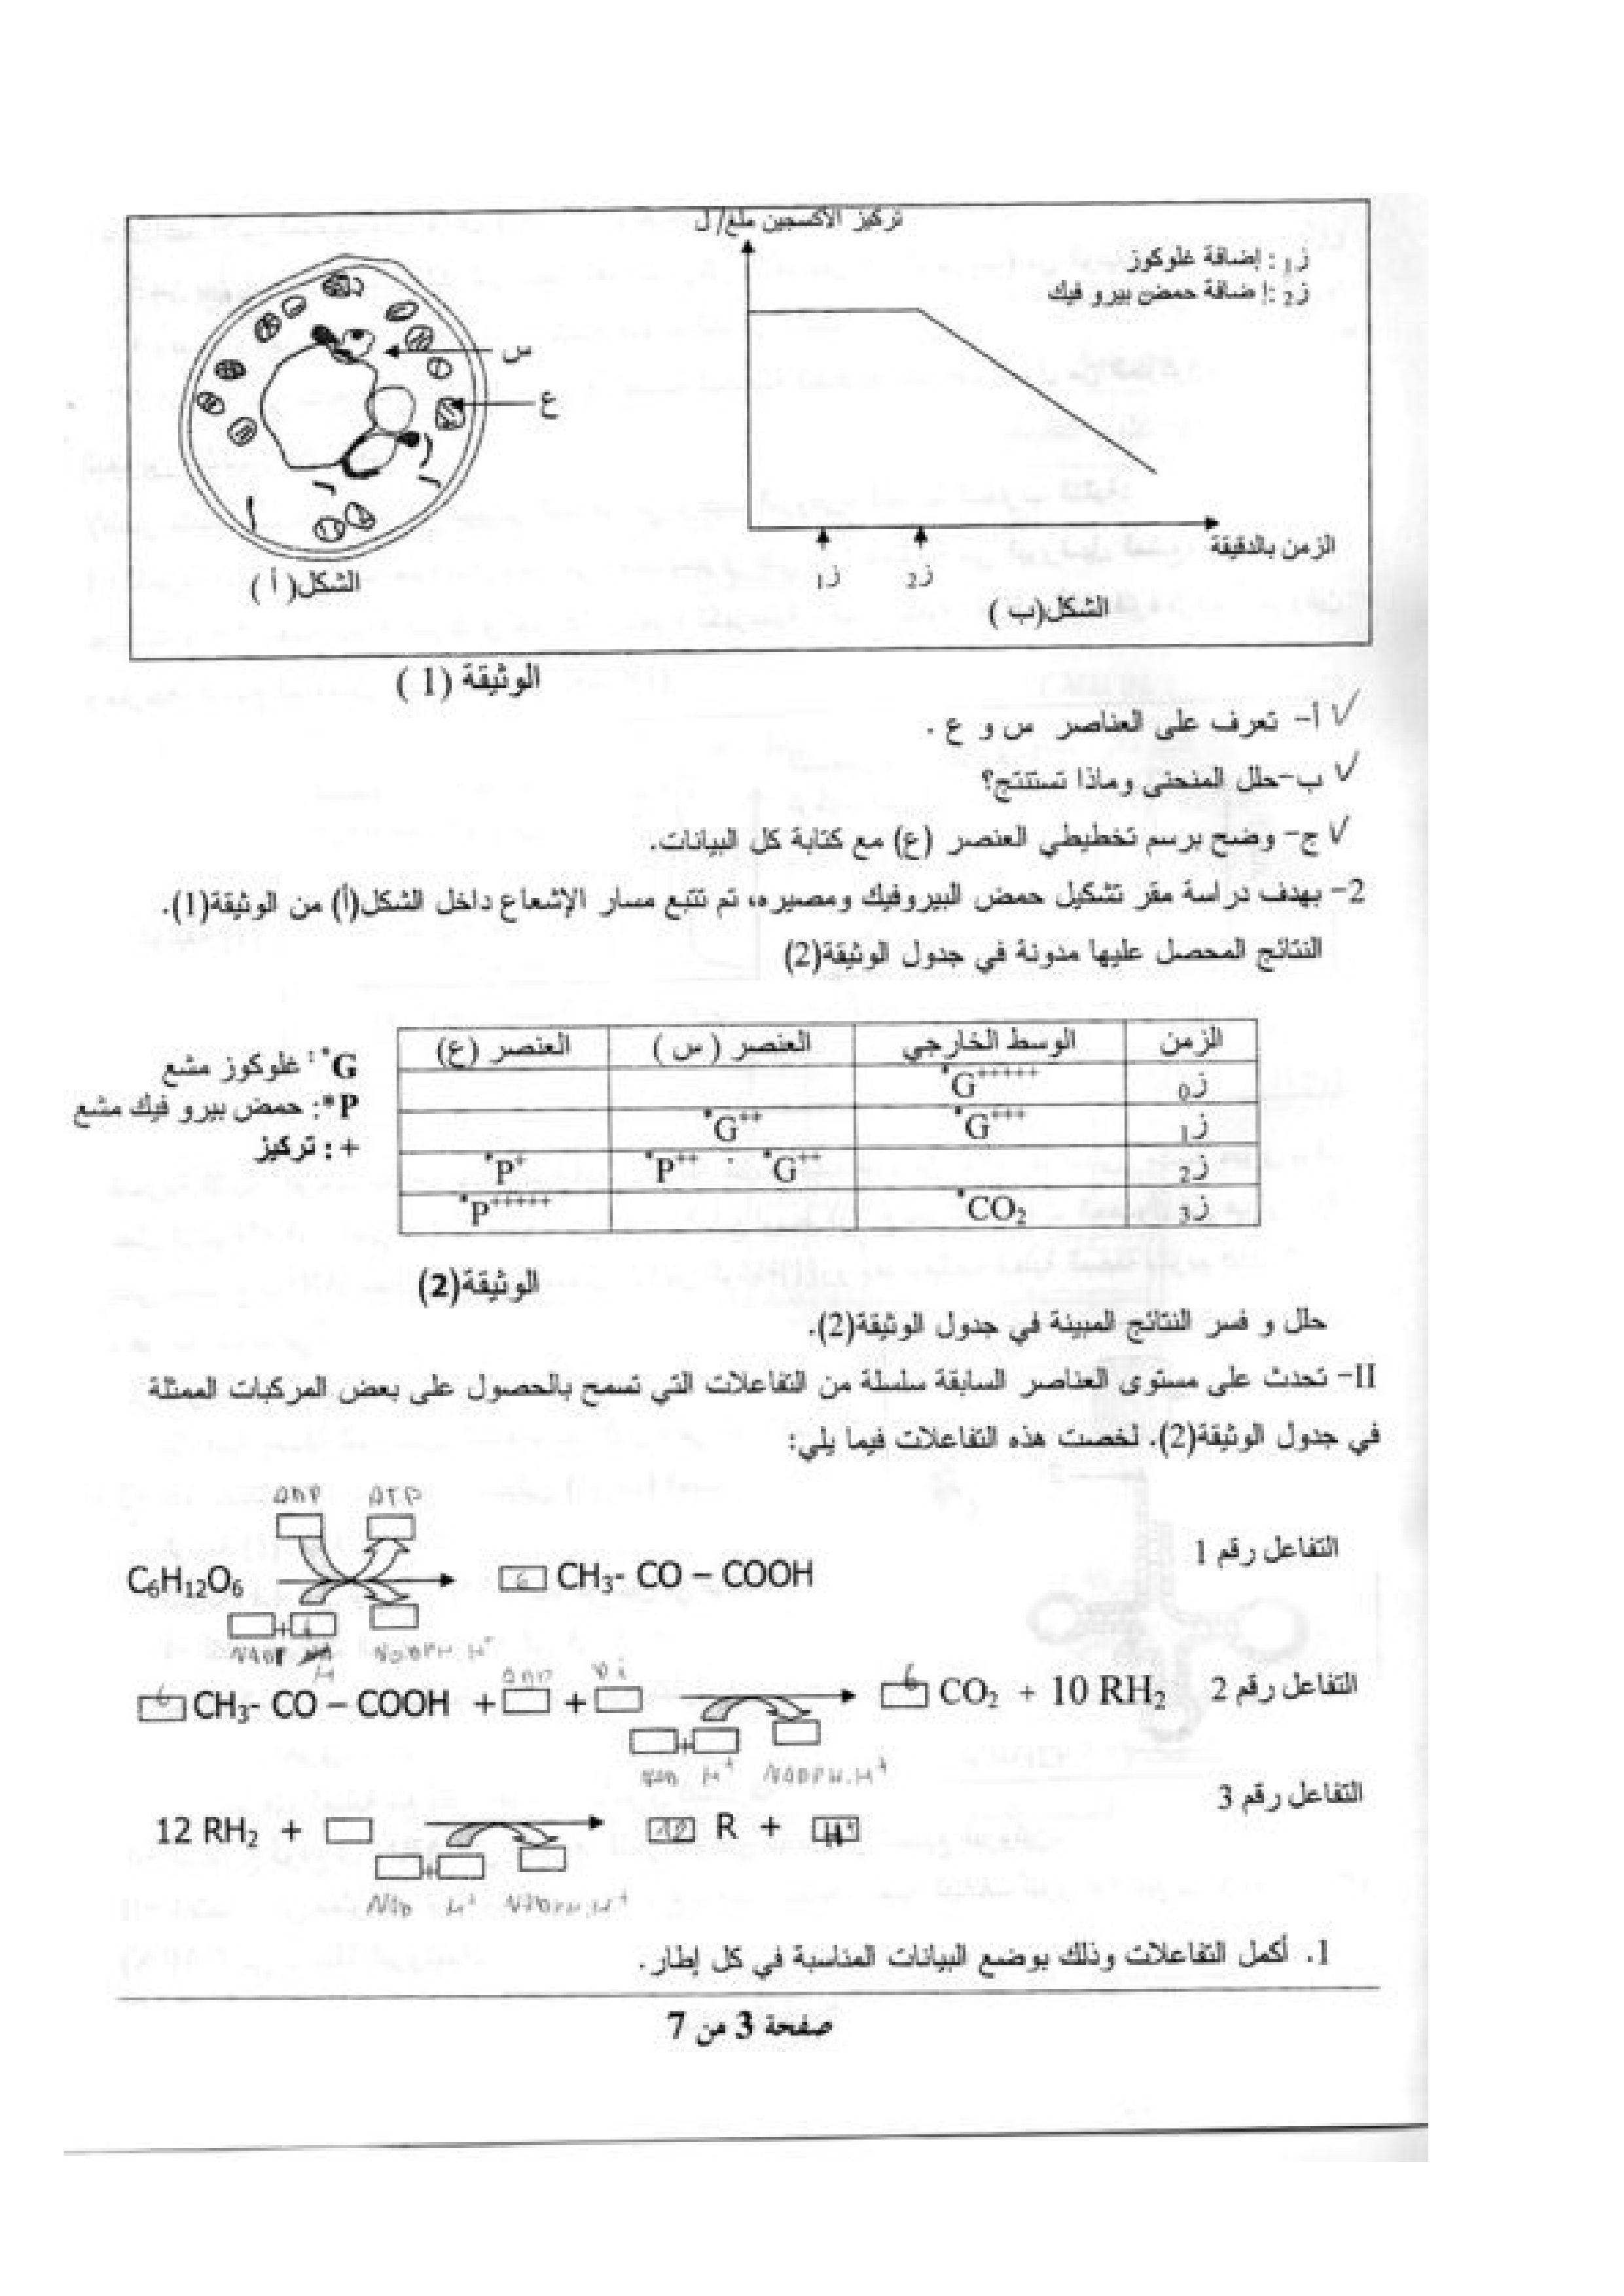 تركيز الأكسجين ملغ/ل
ز1 : إضافة غلوكوز
ز2 :إ ضافة حمض بيرو فيك
س
ع
الزمن بالدقيقة
ز1
ز2
الشكل( أ )
الشكل(ب )
الوثيقة (1 )
أ- تعرف على العناصر س و ع .
ب-حلل المنحنى وماذا تستنتج؟
ج- وضح برسم تخطيطي العنصر (ع) مع كتابة كل البيانات.
2- بهدف دراسة مقر تشكيل حمض البيروفيك ومصيره، تم تتبع مسار الإشعاع داخل الشكل(أ) من الوثيقة(1).
النتائج المحصل عليها مدونة في جدول الوثيقة(2)
الزمن الوسط الخارجي العنصر ( س ) العنصر (ع)
ز0 *G+++++
ز1 *G+++ *G++
ز2 *P++ . *G++ *P+
ز3 *CO2 *P+++++
G* : غلوكوز مشع
P*: حمض بيرو فيك مشع
+ : تركيز
الوثيقة(2)
حلل و فسر النتائج المبينة في جدول الوثيقة(2).
II- تحدث على مستوى العناصر السابقة سلسلة من التفاعلات التي تسمح بالحصول على بعض المركبات الممثلة
في جدول الوثيقة(2). لخصت هذه التفاعلات فيما يلي:
ADP ATP
التفاعل رقم 1
C6H12O6 6 CH3- CO – COOH
+
NADPH.H+
H
ADP Pi
التفاعل رقم 2
6 CH3- CO – COOH + + 6 CO2 + 10 RH2
+
NAD H+ NADPH.H+
التفاعل رقم 3
12 RH2 + 12 R + H+
+
NAD H+ NADPH.H+
1. أكمل التفاعلات وذلك بوضع البيانات المناسبة في كل إطار.
صفحة 3 من 7